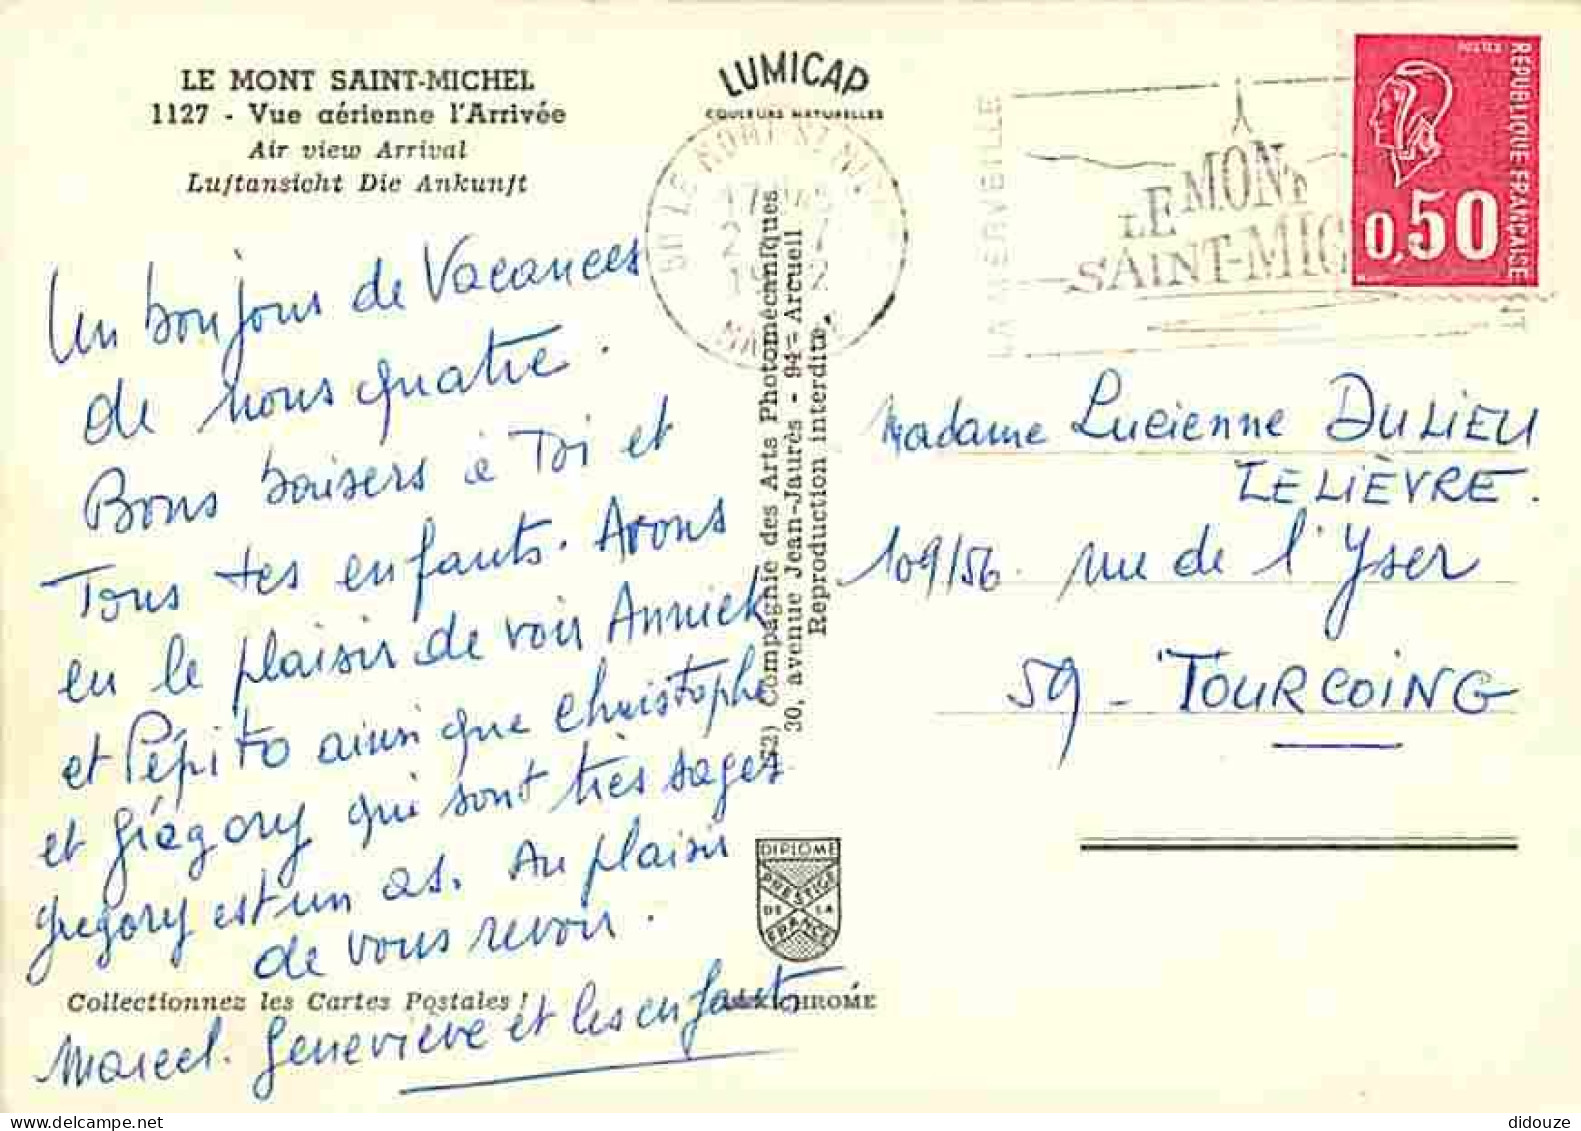 LE MONT SAINT-MICHEL
1127 - Vue aérienne l'Arrivée
Air view Arrival
Luftansicht Die Ankunft
LUMICAP
COULEURS NATURELLES
50 LE MONT ST MICHEL
17
MANCHE
LA MERVEILLE
LE MONT
SAINT-MIC
REPUBLIQUE FRANÇAISE
0,50
Un bonjour de Vacances
de nous quatre.
Bons baisers à Toi et
Tous tes enfants. Avons
eu le plaisir de voir Annick
et Pépito ainsi que Christophe
et Grégory qui sont très sages
Gregory est un as. Au plaisir
de vous revoir.
Marcel. Geneviève et les enfants
Madame Lucienne DULIEU
LELIÈVRE.
109/56. rue de l'Yser
59 - TOURCOING
Compagnie des Arts Photomécaniques
30, avenue Jean-Jaurès - 94 - Arcueil
Reproduction interdite.
DIPLOME
PRESTIGE
DE LA
FRANCE
Collectionnez les Cartes Postales !
didouze